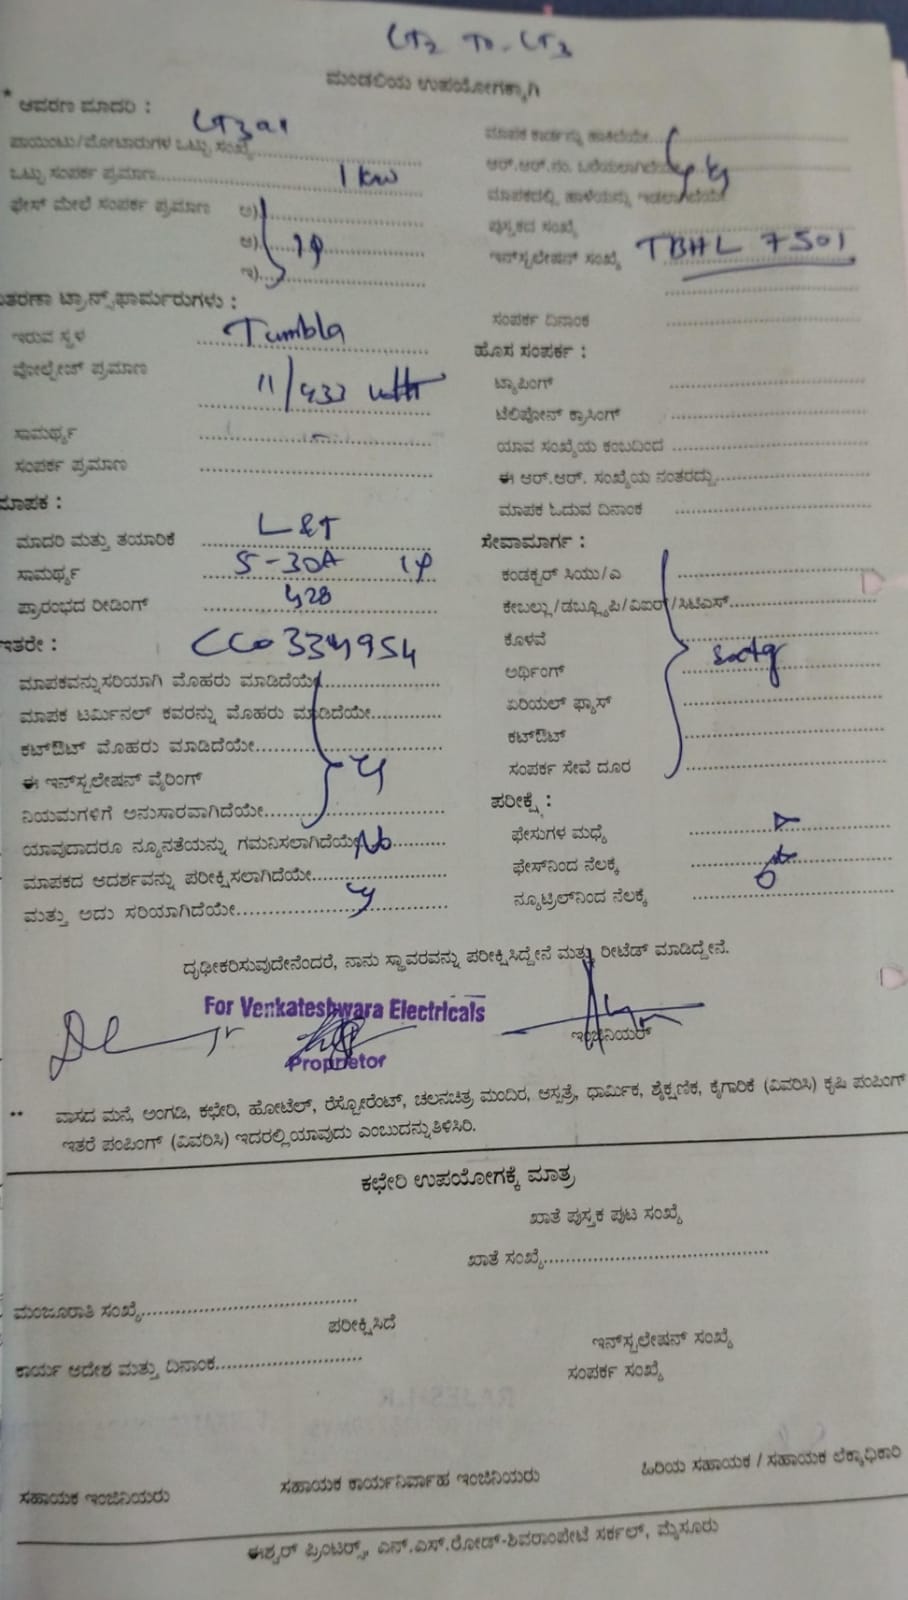 LT2 TO LT3
ಮಂಡಲಿಯ ಉಪಯೋಗಕ್ಕಾಗಿ
* ಆವರಣ ಮಾದರಿ :
LT3a1
ಪಾಯಿಂಟು/ಮೋಟಾರುಗಳ ಒಟ್ಟು ಸಂಖ್ಯೆ
ಒಟ್ಟು ಸಂಪರ್ಕ ಪ್ರಮಾಣ 1 kw
ಫೇಸ್ ಮೇಲೆ ಸಂಪರ್ಕ ಪ್ರಮಾಣ ಅ)
ಆ) 1φ
ಇ)
ವಿತರಣಾ ಟ್ರಾನ್ಸ್‌ಫಾರ್ಮರುಗಳು :
ಇರುವ ಸ್ಥಳ Tumbla
ವೋಲ್ಟೇಜ್ ಪ್ರಮಾಣ 11/433
ಸಾಮರ್ಥ್ಯ
ಸಂಪರ್ಕ ಪ್ರಮಾಣ
ಮಾಪಕ :
ಮಾದರಿ ಮತ್ತು ತಯಾರಿಕೆ L&T
ಸಾಮರ್ಥ್ಯ 5-30A 1φ
ಪ್ರಾರಂಭದ ರೀಡಿಂಗ್ 428
ಇತರೇ :
ಮಾಪಕವನ್ನು ಸರಿಯಾಗಿ ಮೊಹರು ಮಾಡಿದೆಯೇ
ಮಾಪಕ ಟರ್ಮಿನಲ್ ಕವರನ್ನು ಮೊಹರು ಮಾಡಿದೆಯೇ
ಕಟ್‌ಔಟ್ ಮೊಹರು ಮಾಡಿದೆಯೇ
ಈ ಇನ್‌ಸ್ಟಲೇಷನ್ ವೈರಿಂಗ್
ನಿಯಮಗಳಿಗೆ ಅನುಸಾರವಾಗಿದೆಯೇ
ಯಾವುದಾದರೂ ನ್ಯೂನತೆಯನ್ನು ಗಮನಿಸಲಾಗಿದೆಯೇ No
ಮಾಪಕದ ಆದರ್ಶವನ್ನು ಪರೀಕ್ಷಿಸಲಾಗಿದೆಯೇ
ಮತ್ತು ಅದು ಸರಿಯಾಗಿದೆಯೇ y
ಮಾಪಕ ಕಾರ್ಡನ್ನು ಹಾಕಿದೆಯೇ
ಆರ್.ಆರ್.ನಂ. ಬರೆಯಲಾಗಿದೆಯೇ
ಮಾಪಕದಲ್ಲಿ ಹಾಳೆಯನ್ನು ಇಡಲಾಗಿದೆಯೇ
ಪುಸ್ತಕದ ಸಂಖ್ಯೆ
ಇನ್‌ಸ್ಟಲೇಷನ್ ಸಂಖ್ಯೆ TBHL 7501
ಸಂಪರ್ಕ ದಿನಾಂಕ
ಹೊಸ ಸಂಪರ್ಕ :
ಟ್ಯಾಪಿಂಗ್
ಟೆಲಿಫೋನ್ ಕ್ರಾಸಿಂಗ್
ಯಾವ ಸಂಖ್ಯೆಯ ಕಂಬದಿಂದ
ಈ ಆರ್.ಆರ್. ಸಂಖ್ಯೆಯ ನಂತರದ್ದು
ಮಾಪಕ ಓದುವ ದಿನಾಂಕ
ಸೇವಾಮಾರ್ಗ :
ಕಂಡಕ್ಟರ್ ಸಿಯು/ಎ
ಕೇಬಲ್ಲು/ಡಬ್ಲ್ಯೂಪಿ/ವಿಐಆರ್/ಸಿಟಿಎಸ್
ಕೊಳವೆ
ಅರ್ಥಿಂಗ್
ಏರಿಯಲ್ ಫ್ಯೂಸ್
ಕಟ್‌ಔಟ್
ಸಂಪರ್ಕ ಸೇವೆ ದೂರ
ಪರೀಕ್ಷೆ :
ಫೇಸುಗಳ ಮಧ್ಯೆ
ಫೇಸ್‌ನಿಂದ ನೆಲಕ್ಕೆ
ನ್ಯೂಟ್ರಲ್‌ನಿಂದ ನೆಲಕ್ಕೆ
ದೃಢೀಕರಿಸುವುದೇನೆಂದರೆ, ನಾನು ಸ್ಥಾವರವನ್ನು ಪರೀಕ್ಷಿಸಿದ್ದೇನೆ ಮತ್ತು ರೀಟೆಡ್ ಮಾಡಿದ್ದೇನೆ.
For Venkateshwara Electricals
Proprietor
ಇಂಜಿನಿಯರ್
** ವಾಸದ ಮನೆ, ಅಂಗಡಿ, ಕಛೇರಿ, ಹೋಟೆಲ್, ರೆಸ್ಟೋರೆಂಟ್, ಚಲನಚಿತ್ರ ಮಂದಿರ, ಆಸ್ಪತ್ರೆ, ಧಾರ್ಮಿಕ, ಶೈಕ್ಷಣಿಕ, ಕೈಗಾರಿಕೆ (ವಿವರಿಸಿ) ಕೃಷಿ ಪಂಪಿಂಗ್
ಇತರೆ ಪಂಪಿಂಗ್ (ವಿವರಿಸಿ) ಇದರಲ್ಲಿ ಯಾವುದು ಎಂಬುದನ್ನು ತಿಳಿಸಿರಿ.
ಕಛೇರಿ ಉಪಯೋಗಕ್ಕೆ ಮಾತ್ರ
ಖಾತೆ ಪುಸ್ತಕ ಪುಟ ಸಂಖ್ಯೆ
ಖಾತೆ ಸಂಖ್ಯೆ
ಮಂಜೂರಾತಿ ಸಂಖ್ಯೆ
ಪರೀಕ್ಷಿಸಿದೆ
ಇನ್‌ಸ್ಟಲೇಷನ್ ಸಂಖ್ಯೆ
ಕಾರ್ಯ ಆದೇಶ ಮತ್ತು ದಿನಾಂಕ
ಸಂಪರ್ಕ ಸಂಖ್ಯೆ
ಸಹಾಯಕ ಇಂಜಿನಿಯರು
ಸಹಾಯಕ ಕಾರ್ಯನಿರ್ವಾಹ ಇಂಜಿನಿಯರು
ಹಿರಿಯ ಸಹಾಯಕ / ಸಹಾಯಕ ಲೆಕ್ಕಾಧಿಕಾರಿ
ಈಶ್ವರ್ ಪ್ರಿಂಟರ್ಸ್, ಎನ್.ಎಸ್.ರೋಡ್-ಶಿವರಾಂಪೇಟೆ ಸರ್ಕಲ್, ಮೈಸೂರು